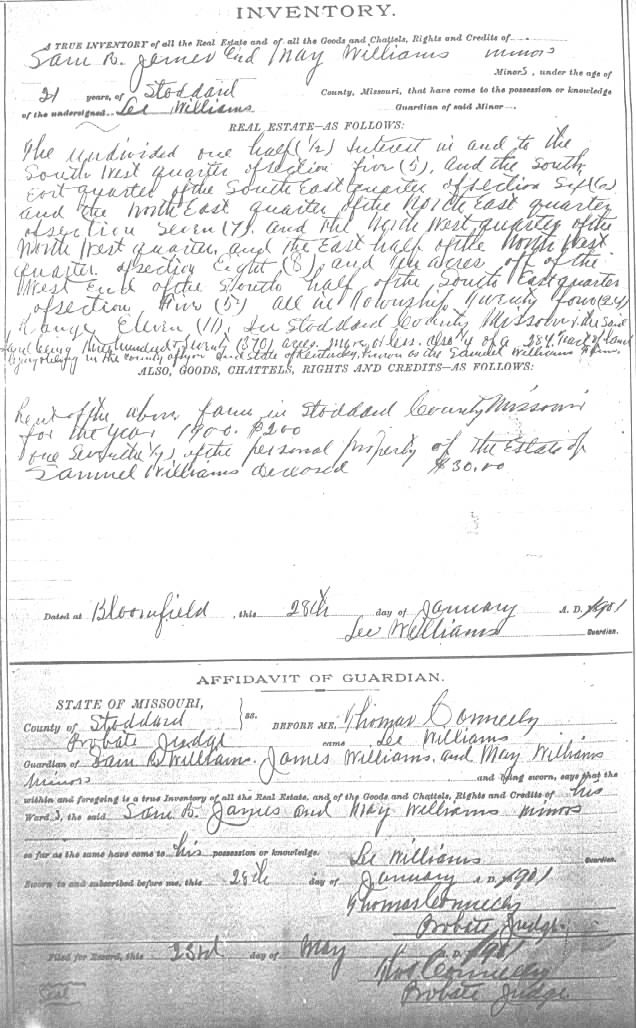 INVENTORY.
A TRUE INVENTORY of all the Real Estate and of all the Goods and Chattels, Rights and Credits of
Sam B. James and May Williams minors
Minors, under the age of
21 years, of Stoddard County, Missouri, that have come to the possession or knowledge
of the undersigned Lee Williams Guardian of said Minor
REAL ESTATE—AS FOLLOWS:
The undivided one half (1/2) Interest in and to the
South West quarter of section five (5), and the South
East quarter of the South East quarter of section Six (6)
and the North East quarter of the North East quarter
of section Seven (7), and the North West quarter of the
North West quarter, and the East half of the North West
quarter of section Eight (8), and ten acres off of the
West End of the South half of the South East quarter
of section Five (5) all in Township Twenty four (24)
Range Eleven (11), In Stoddard County Missouri, the said
land being three hundred & twenty acres, more or less. also of a 284 tract of land
lying in the County of and State of Kentucky, known as the Samuel Williams farm.
ALSO, GOODS, CHATTELS, RIGHTS AND CREDITS—AS FOLLOWS:
Rent of the above farm in Stoddard County Missouri
for the year 1900. $200
one Seventh (1/7) of the personal property of the Estate of
Samuel Williams deceased $30.00
Dated at Bloomfield, this 28th day of January A. D. 1901
Lee Williams Guardian.
AFFIDAVIT OF GUARDIAN.
STATE OF MISSOURI,
County of Stoddard } ss. BEFORE ME, Thomas Connelly
Probate Judge came Lee Williams
Guardian of Sam B. Williams, James Williams, and May Williams
minors and being sworn, says that the
within and foregoing is a true Inventory of all the Real Estate, and of the Goods and Chattels, Rights and Credits of his
Ward s, the said Sam B. James and May Williams minors
so far as the same have come to his possession or knowledge. Lee Williams Guardian.
Sworn to and subscribed before me, this 28th day of January A. D. 1901
Thomas Connelly
Probate Judge.
Filed for Record, this 23rd day of May A. D. 1901
Thos Connelly
Seal Probate Judge